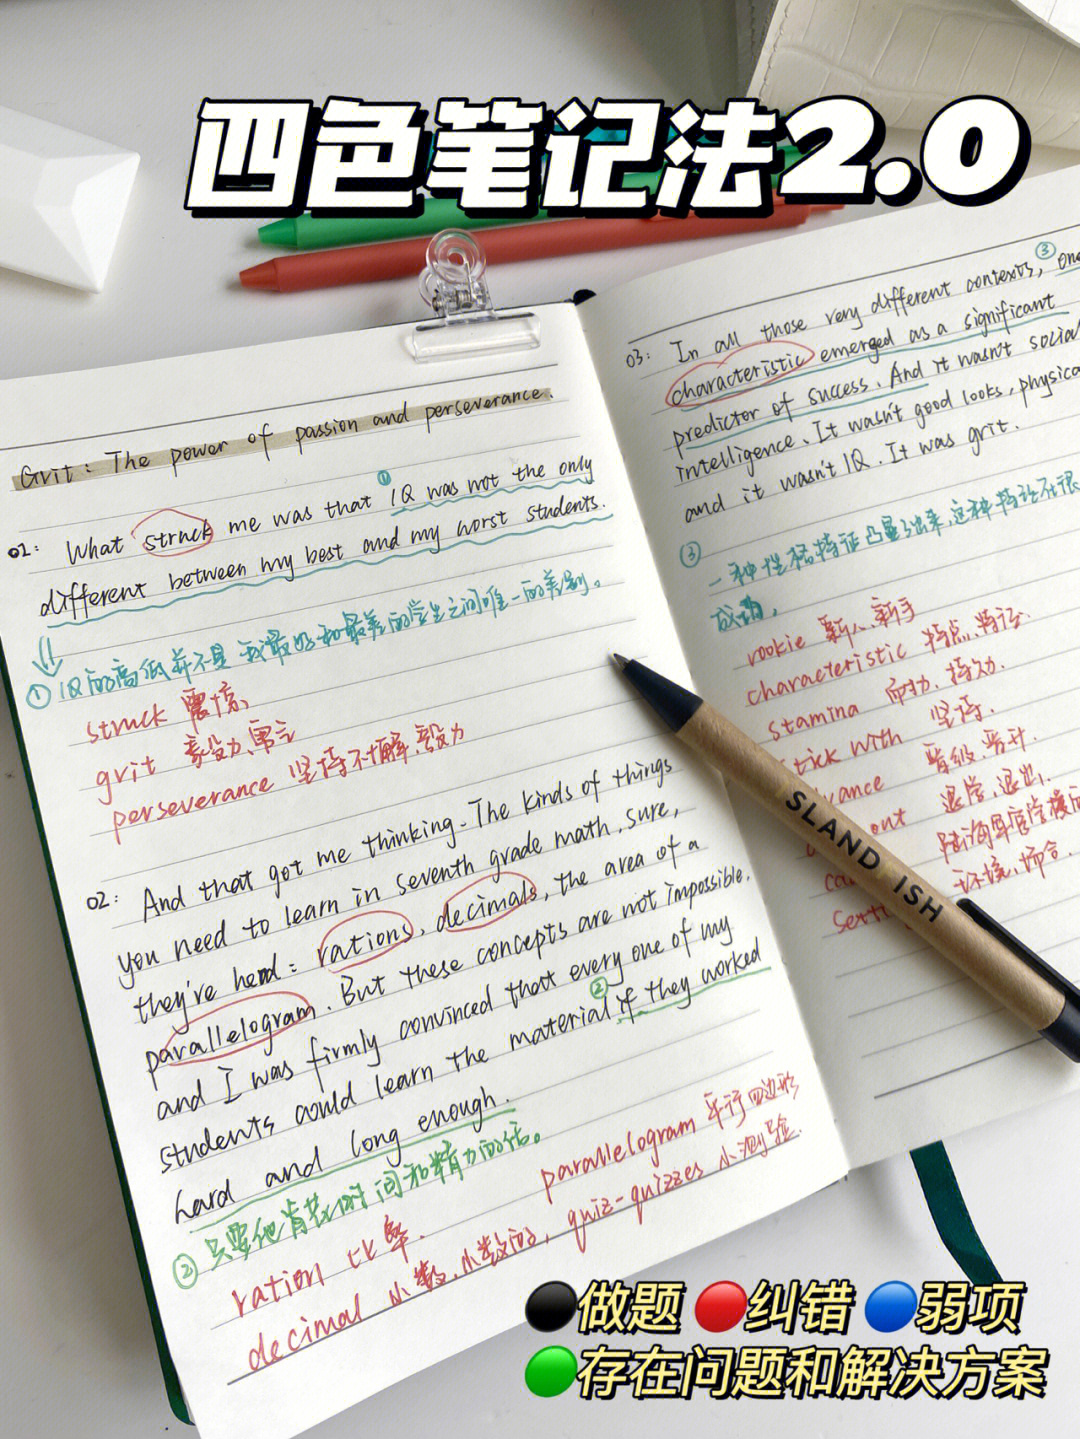 四色笔记法2.0
Grit: The power of passion and perseverance.
01: What struck me was that ① IQ was not the only
different between my best and my worst students.
① IQ的高低并不是我最好和最差的学生之间唯一的差别。
struck 震惊
grit 毅力
perseverance 坚持不懈、毅力
02: And that got me thinking. The kinds of things
you need to learn in seventh grade math, sure,
they've head: rations, decimals, the area of a
parallelogram. But these concepts are not impossible,
and I was firmly convinced that every one of my
students could learn the material ② if they worked
hard and long enough.
② 只要他肯花时间和精力的话。
parallelogram 平行四边形
ration 比率
quiz-quizzes 小测验
decimal 小数、小数的,
03: In all those very different contexts, ③ one
characteristic emerged as a significant
predictor of success. And it wasn't social
intelligence. It wasn't good looks, physical
and it wasn't IQ. It was grit.
③ 一种性格特征凸显了出来,这种特征在很
成功,
rookie 新人、新手
characteristic 特点、特征
stamina 耐力、持劲
stick with 坚持.
vance 晋级、晋升.
out 退学、退出.
陆海军官学校
ca
sett 环境、场合.
SLAND ISH
做题 纠错 弱项
存在问题和解决方案